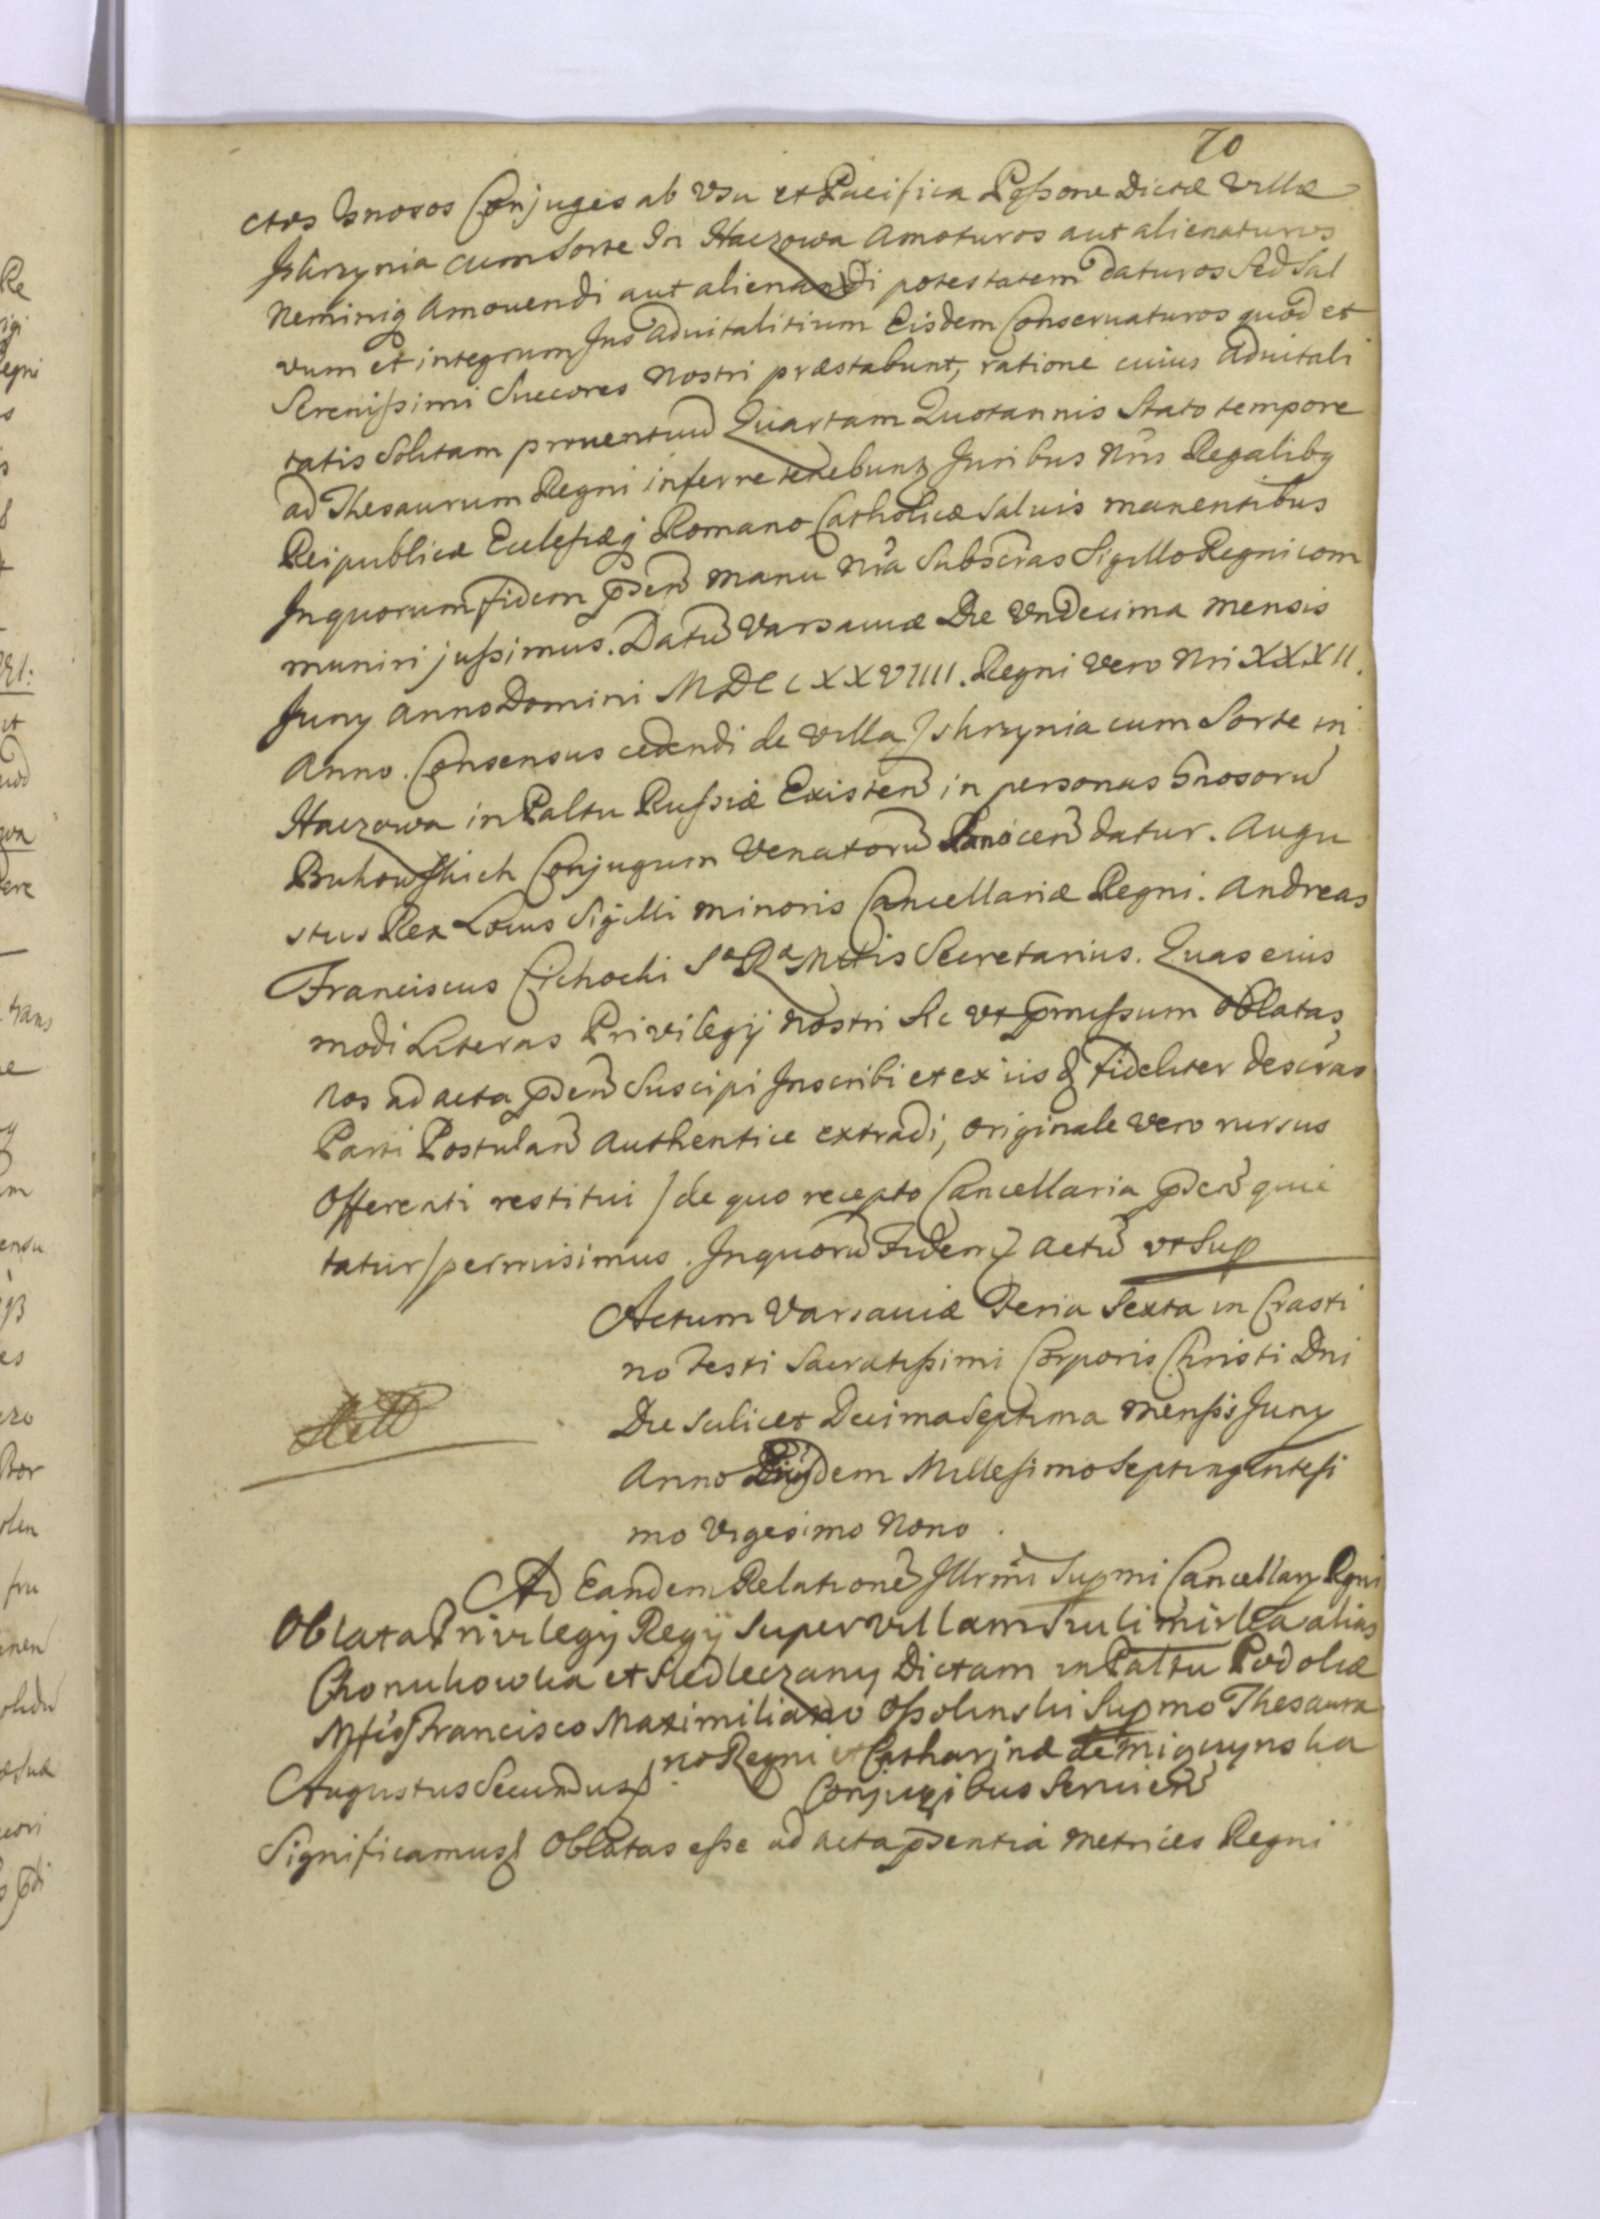 70
ctos Gnosos Conjuges ab Vsu et Pacifica Possone Dictæ Villæ
Iskrzynia cum Sorte In Haczowa amoturos aut alienaturos
Neminiq Amovendi aut alienandi potestatem daturos Sed Sal
vum et integrum Jus advitalitium Eisdem Conservaturos quod et
Serenissimi Succores Nostri præstabunt, ratione cuius advitali
tatis Solitam proventuu Quartam Quotannis Stato tempore
ad Thesaurum Regni inferre tenebunt Juribus Nris Regalibq
Reipublicæ Ecclesiæq Romano Catholicæ Salvis manentibus
In quorum fidem pden manu Nra Subscras Sigillo Regni com
muniri jussimus. Datu Varsaviæ Die Undecima mensis
Juny anno Domini MDCCXXVIIII. Regni Vero Nri XXXII.
Anno. Consensus cedendi de Villa Iskrzynia cum Sorte in
Haczowa in Paltu Russiæ Existen in personas Gnosoru
Bukowskich Conjugum Venatoru Sanocen datur. Augu
stus Rex Locus Sigilli minoris Cancellariæ Regni. Andreas
Franciscus Cichocki Sa Ra Mttis Secretarius. Quas eius
modi Literas Privilegij Nostri Sic vt pmissum oblatas,
Nos ad acta pden Suscipi Inscribi et ex iis fideliter descras
Parti Postulan authentice extradi, originale vero rursus
Offerenti restitui / de quo recepto Cancellaria pden quie
tatur / permisimus. In quoru Fidem Actu vt Sup
Actum Varsaviæ Feria Sexta in Crasti
no Festi Sacratissimi Corporis Christi Dni
Die Scilicet Decima Septima mensis Juny
Anno Eiusdem Millesimo Septingentesi
mo Vigesimo Nono.
Ad Eandem Relatione Illrmi Supmi Cancellary Rgni
Oblata Privilegij Regij Super Villam Sulimirka alias
Chonukowka et Siedleczany Dictam in Paltu Podoliæ
Mfco Francisco Maximiliano Ossolinski Supmo Thesaura
rio Regni et Catharinæ de Mionczynska
Augustus Secundus
Conjugibus Servien
Significamus Oblatas esse ad acta psentia Metrices Regni